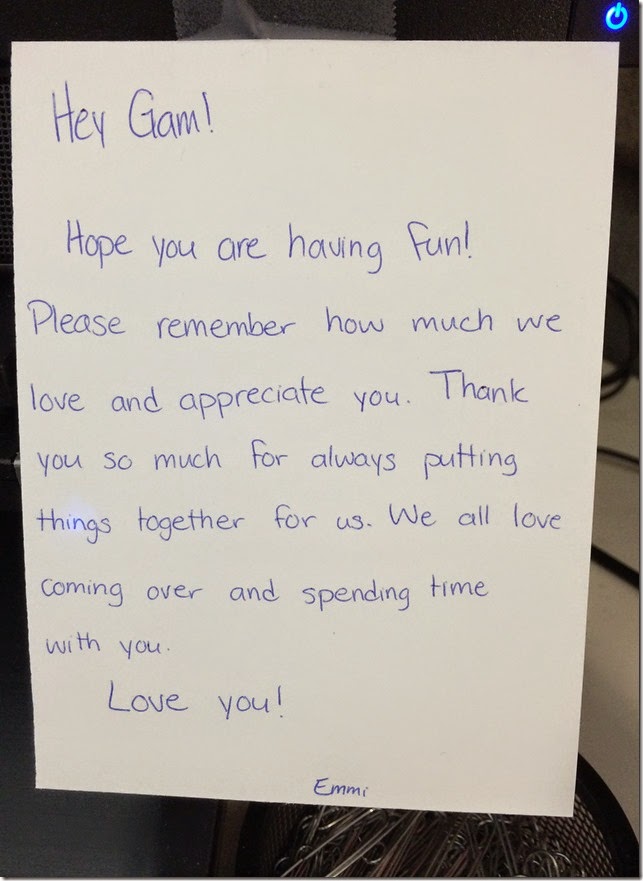 Hey Gam!
Hope you are having fun!
Please remember how much we
love and appreciate you. Thank
you so much for always putting
things together for us. We all love
coming over and spending time
with you.
Love you!
Emmi